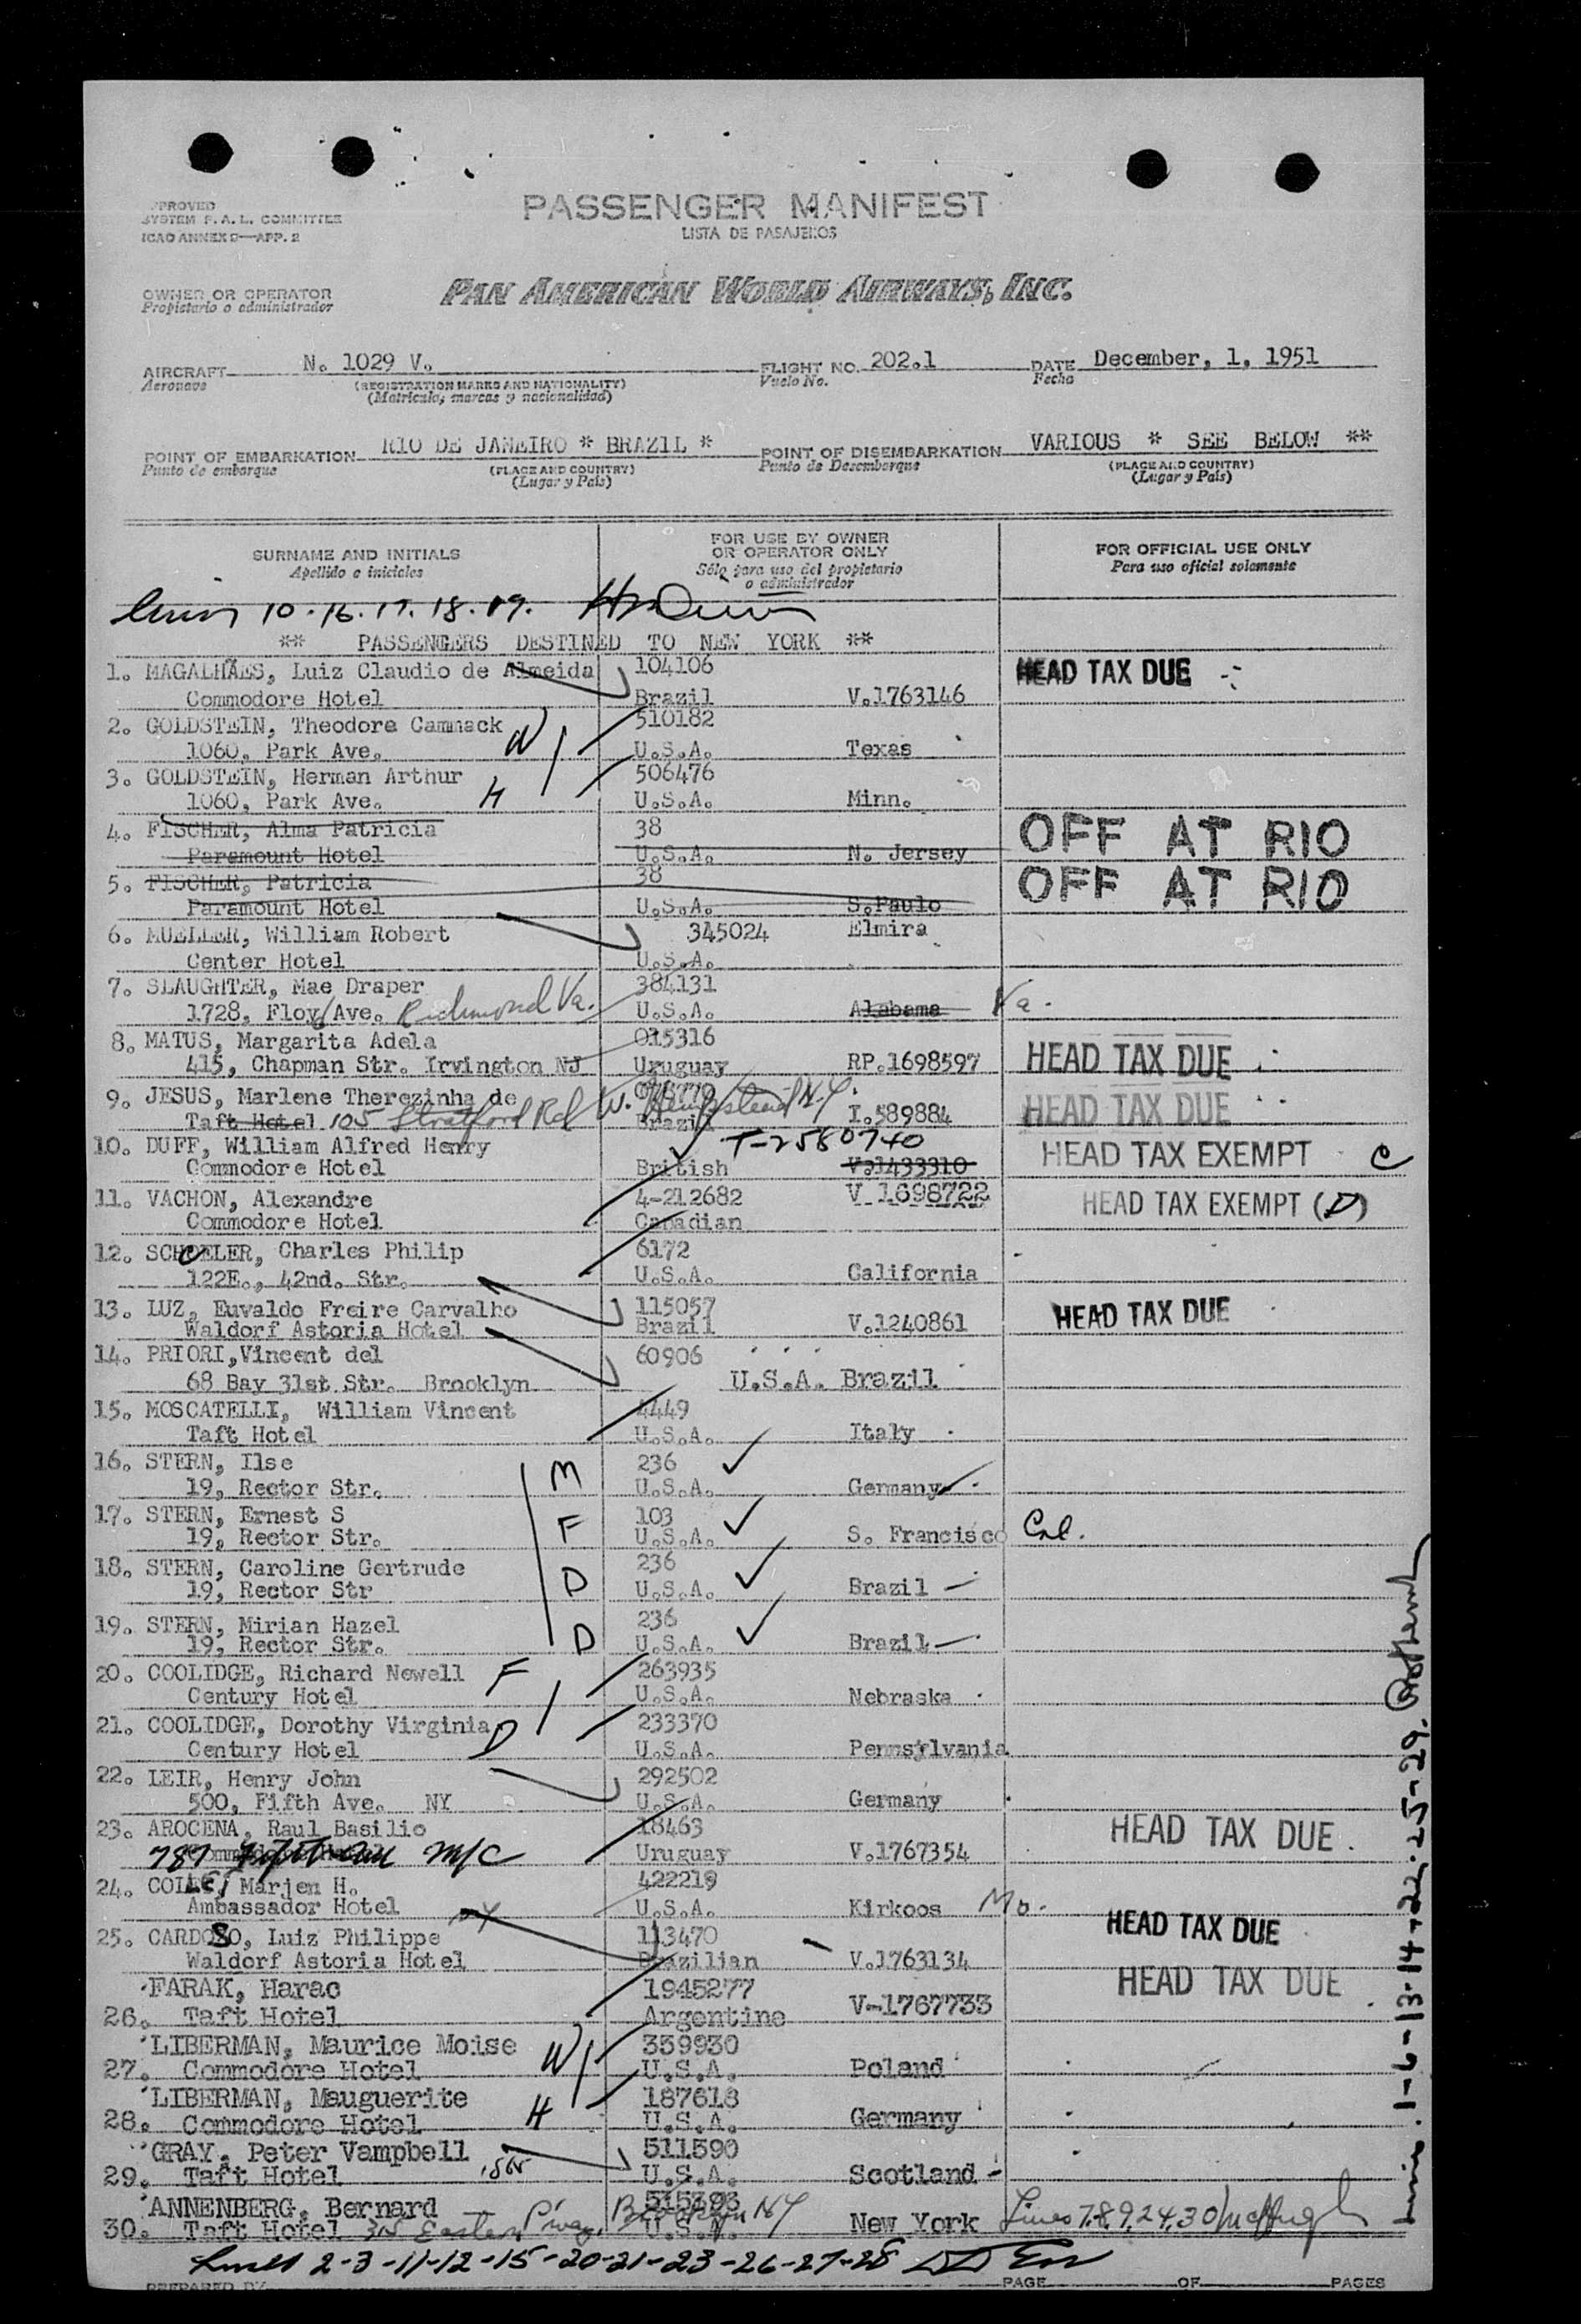 APPROVED
SYSTEM F.A.L. COMMITTEE
ICAO ANNEX 9—APP. 2
PASSENGER MANIFEST
LISTA DE PASAJEROS
OWNER OR OPERATOR
Propietario o administrador
PAN AMERICAN WORLD AIRWAYS, INC.
AIRCRAFT N. 1029 V. FLIGHT NO. 202.1 DATE December, 1, 1951
Aeronave (REGISTRATION MARKS AND NATIONALITY) Vuelo No. Fecha
(Matricula, marcas y nacionalidad)
POINT OF EMBARKATION RIO DE JANEIRO * BRAZIL * POINT OF DISEMBARKATION VARIOUS * SEE BELOW **
Punto de embarque (PLACE AND COUNTRY) Punto de Desembarque (PLACE AND COUNTRY)
(Lugar y País) (Lugar y País)
SURNAME AND INITIALS FOR USE BY OWNER OR OPERATOR ONLY FOR OFFICIAL USE ONLY
Apellido e iniciales Sólo para uso del propietario o administrador Para uso oficial solamente
10-16.17.18.19.
** PASSENGERS DESTINED TO NEW YORK **
1. MAGALHÃES, Luiz Claudio de Almeida 104106 HEAD TAX DUE
Commodore Hotel Brazil V.1763146
2. GOLDSTEIN, Theodora Cammack W 510182
1060, Park Ave. U.S.A. Texas
3. GOLDSTEIN, Herman Arthur 506476
1060, Park Ave. H U.S.A. Minn.
4. FISCHER, Alma Patricia 38 OFF AT RIO
Paramount Hotel U.S.A. N. Jersey
5. FISCHER, Patricia 38 OFF AT RIO
Paramount Hotel U.S.A. S.Paulo
6. MUELLER, William Robert 345024 Elmira
Center Hotel U.S.A.
7. SLAUGHTER, Mae Draper 384131
1728, Floyd Ave. Richmond Va. U.S.A. Alabama Va.
8. MATUS, Margarita Adela 015316
415, Chapman Str. Irvington NJ Uruguay RP.1698597 HEAD TAX DUE
9. JESUS, Marlene Therezinha de
Taft Hotel 105 Stratford Rd W. Hempstead N.Y. Brazil I.589884 HEAD TAX DUE
10. DUFF, William Alfred Henry T-2580740
Commodore Hotel British V.1433310 HEAD TAX EXEMPT C
11. VACHON, Alexandre 4-212682 V 1698722 HEAD TAX EXEMPT (D)
Commodore Hotel Canadian
12. SCHOELER, Charles Philip 6172
122E., 42nd. Str. U.S.A. California
13. LUZ, Euvaldo Freire Carvalho 115057 HEAD TAX DUE
Waldorf Astoria Hotel Brazil V.1240861
14. PRIORI,Vincent del 60906
68 Bay 31st Str. Brooklyn U.S.A. Brazil
15. MOSCATELLI, William Vincent 4449
Taft Hotel U.S.A. Italy
16. STERN, Ilse M 236
19, Rector Str. U.S.A. Germany
17. STERN, Ernest S F 103
19, Rector Str. U.S.A. S. Francisco Cal.
18. STERN, Caroline Gertrude D 236
19, Rector Str U.S.A. Brazil
19. STERN, Mirian Hazel 236
19, Rector Str. D U.S.A. Brazil
20. COOLIDGE, Richard Newell F 263935
Century Hotel U.S.A. Nebraska
21. COOLIDGE, Dorothy Virginia D 233370
Century Hotel U.S.A. Pennsylvania
22. LEIR, Henry John 292502
500, Fifth Ave. NY U.S.A. Germany
23. AROCENA, Raul Basilio 18463 HEAD TAX DUE
787 Uruguay V.1767354
24. Marjen H. 422219
Ambassador Hotel NY U.S.A. Kirkoos Mo.
25. CARDOSO, Luiz Philippe 113470 HEAD TAX DUE
Waldorf Astoria Hotel Brazilian V.1763134
FARAK, Harac 1945277 HEAD TAX DUE
26. Taft Hotel Argentine V-1767733
LIBERMAN, Maurice Moise W 339930
27. Commodore Hotel U.S.A. Poland
LIBERMAN, Mauguerite 187618
28. Commodore Hotel H U.S.A. Germany
GRAY, Peter Vampbell 511590
29. Taft Hotel U.S.A. Scotland
ANNENBERG, Bernard 515393 Brooklyn NY
30. Taft Hotel Eastern U.S.A. New York Lines 7.8.9.24.30
2-3-11-12-15-20-21-23-26-27-28
1-6-13-14-22-25-29.
PREPARED BY PAGE OF PAGES